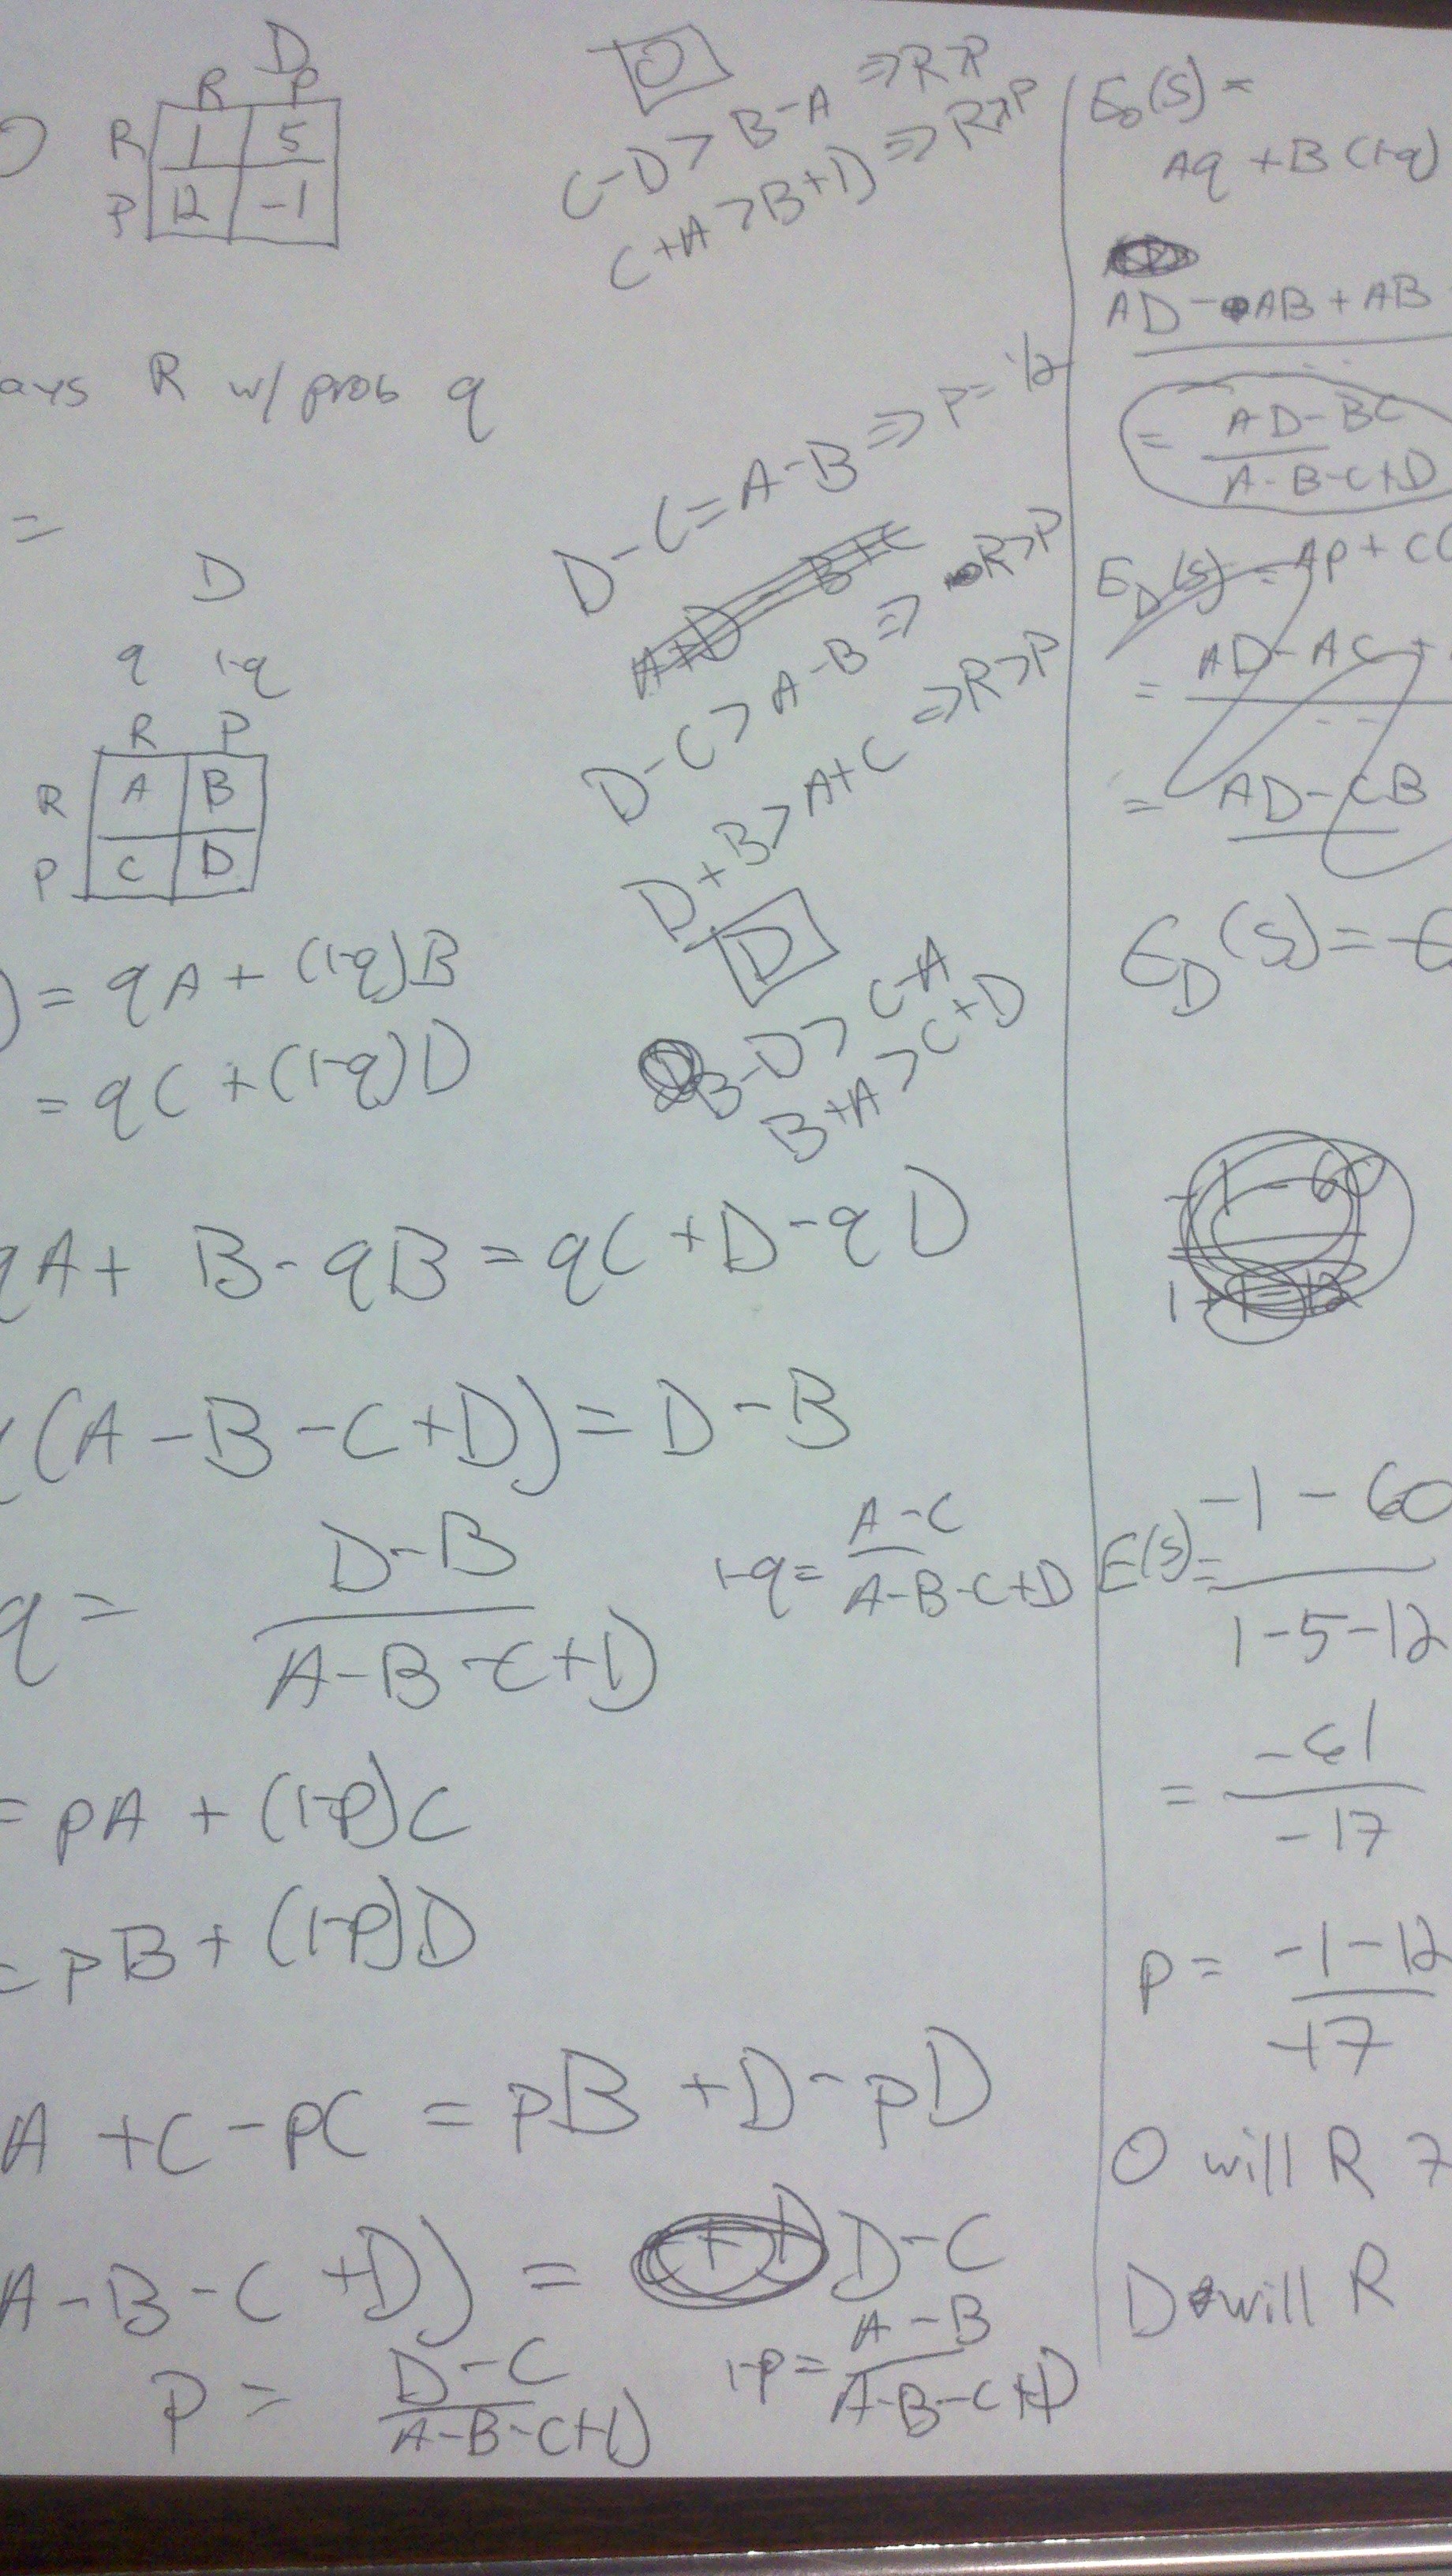 D
R P
R 1 5
P 12 -1
ays R w/ prob q
=
D
q 1-q
R P
R A B
P C D
) = qA + (1-q)B
= qC + (1-q)D
qA + B - qB = qC + D - qD
(A - B - C + D) = D - B
q = D-B / A-B-C+D
1-q = A-C / A-B-C+D
= pA + (1-p)C
= pB + (1-p)D
A + C - pC = pB + D - pD
A - B - C + D) = D - C
P = D-C / A-B-C+D
1-p = A-B / A-B-C+D
O
C-D > B-A ⇒ R>P
C+A > B+D ⇒ R>P
D-C = A-B ⇒ P = 1/2
D-C > A-B ⇒ R>P
D+B > A+C ⇒ R>P
D
B-D > C-A
B+A > C+D
E₀(S) =
Aq + B(1-q)
AD - AB + AB
= AD-BC / A-B-C+D
E_D(S) = AP + C(
= AD - AC +
= AD - CB
E_D(S) = -E
E(S) = -1-60 / 1-5-12
= -61 / -17
P = -1-12 / -17
O will R 7
D will R